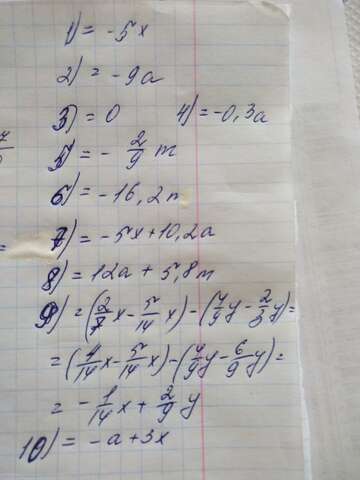 1) = -5x
2) = -9a
3) = 0 4) = -0,3a
5) = - 2/9 m
6) = -16,2n
7) = -5x+10,2a
8) = 12a + 5,8m
9) = (2/7 x - 5/14 x) - (4/9 y - 2/3 y) =
= (4/14 x - 5/14 x) - (4/9 y - 6/9 y) =
= - 1/14 x + 2/9 y
10) = -a + 3x